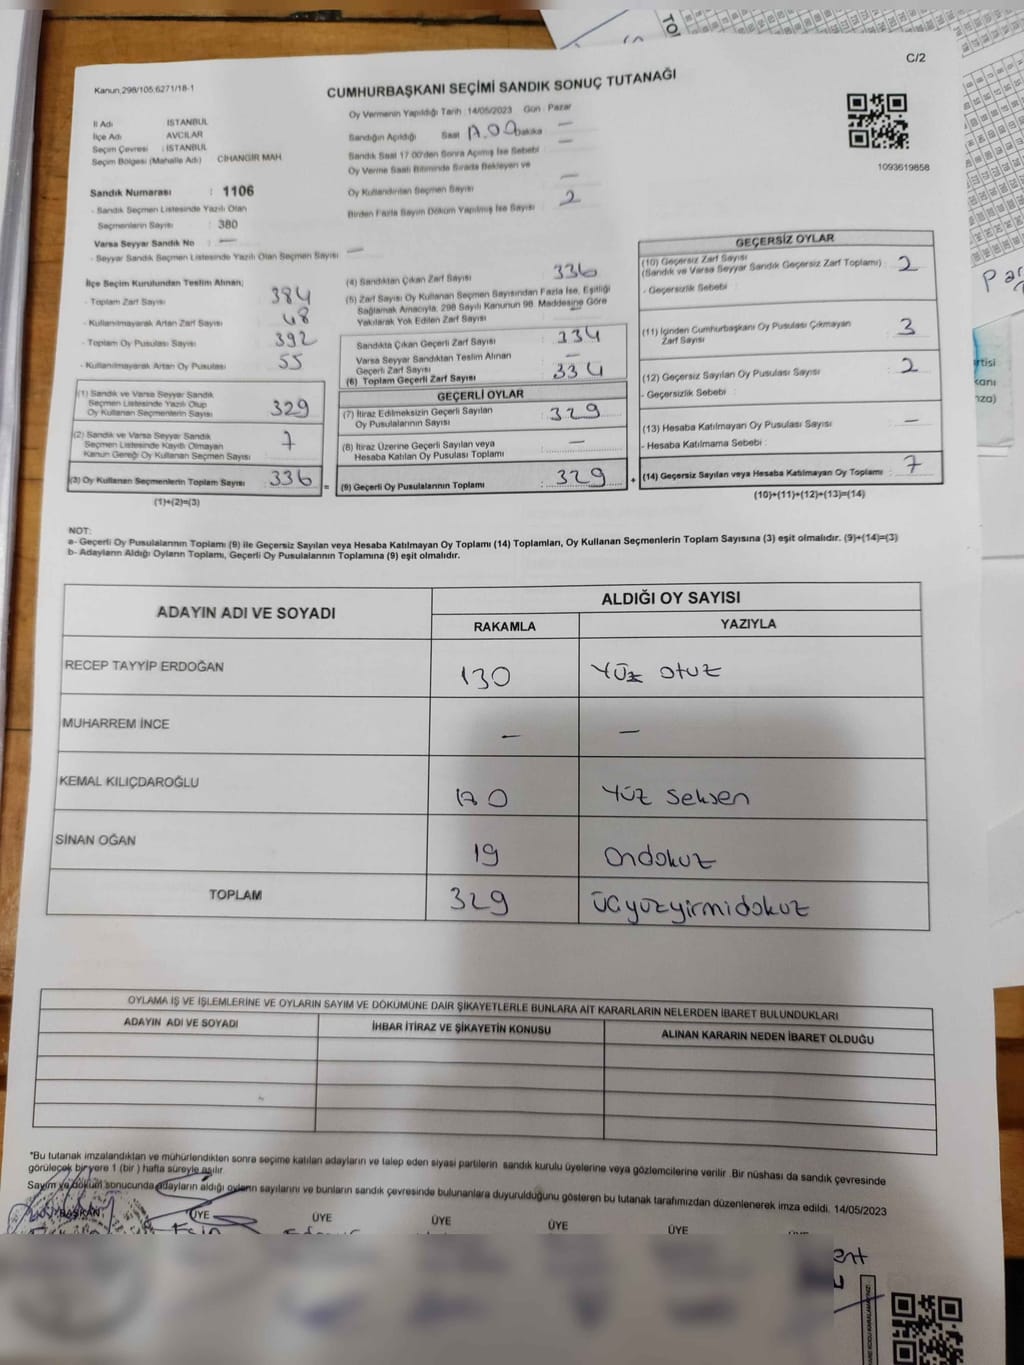 C/2
Kanun,298/105;6271/18-1
CUMHURBAŞKANI SEÇİMİ SANDIK SONUÇ TUTANAĞI
İl Adı ISTANBUL
İlçe Adı AVCILAR
Seçim Çevresi : ISTANBUL
Seçim Bölgesi (Mahalle Adı) CİHANGİR MAH
Oy Vermenin Yapıldığı Tarih : 14/05/2023 Gün : Pazar
Sandığın Açıldığı Saat Dakika —
Sandık Saat 17:00'den Sonra Açılmış İse Sebebi —
Oy Verme Saati Bitiminde Sırada Bekleyen ve
Oy Kullandırılan Seçmen Sayısı —
Birden Fazla Sayım Döküm Yapılmış İse Sayısı 2
1093619858
Sandık Numarası : 1106
- Sandık Seçmen Listesinde Yazılı Olan
Seçmenlerin Sayısı : 380
Varsa Seyyar Sandık No : —
- Seyyar Sandık Seçmen Listesinde Yazılı Olan Seçmen Sayısı —
İlçe Seçim Kurulundan Teslim Alınan;
- Toplam Zarf Sayısı 384
- Kullanılmayarak Artan Zarf Sayısı 48
- Toplam Oy Pusulası Sayısı 392
- Kullanılmayarak Artan Oy Pusulası 55
(1) Sandık ve Varsa Seyyar Sandık
Seçmen Listesinde Yazılı Olup
Oy Kullanan Seçmenlerin Sayısı : 329
(2) Sandık ve Varsa Seyyar Sandık
Seçmen Listesinde Kayıtlı Olmayan
Kanun Gereği Oy Kullanan Seçmen Sayısı : 7
(3) Oy Kullanan Seçmenlerin Toplam Sayısı : 336 =
(1)+(2)=(3)
(4) Sandıktan Çıkan Zarf Sayısı : 336
(5) Zarf Sayısı Oy Kullanan Seçmen Sayısından Fazla İse, Eşitliği
Sağlamak Amacıyla, 298 Sayılı Kanunun 98. Maddesine Göre
Yakılarak Yok Edilen Zarf Sayısı
Sandıkta Çıkan Geçerli Zarf Sayısı : 334
Varsa Seyyar Sandıktan Teslim Alınan
Geçerli Zarf Sayısı : —
(6) Toplam Geçerli Zarf Sayısı : 334
GEÇERLİ OYLAR
(7) İtiraz Edilmeksizin Geçerli Sayılan
Oy Pusulalarının Sayısı : 329
(8) İtiraz Üzerine Geçerli Sayılan veya
Hesaba Katılan Oy Pusulası Toplamı : —
(9) Geçerli Oy Pusulalarının Toplamı : 329 +
GEÇERSİZ OYLAR
(10) Geçersiz Zarf Sayısı
(Sandık ve Varsa Seyyar Sandık Geçersiz Zarf Toplamı) : 2
- Geçersizlik Sebebi :
(11) İçinden Cumhurbaşkanı Oy Pusulası Çıkmayan
Zarf Sayısı : 3
(12) Geçersiz Sayılan Oy Pusulası Sayısı : 2
- Geçersizlik Sebebi :
(13) Hesaba Katılmayan Oy Pusulası Sayısı : —
- Hesaba Katılmama Sebebi :
(14) Geçersiz Sayılan veya Hesaba Katılmayan Oy Toplamı : 7
(10)+(11)+(12)+(13)=(14)
NOT:
a- Geçerli Oy Pusulalarının Toplamı (9) ile Geçersiz Sayılan veya Hesaba Katılmayan Oy Toplamı (14) Toplamları, Oy Kullanan Seçmenlerin Toplam Sayısına (3) eşit olmalıdır. (9)+(14)=(3)
b- Adayların Aldığı Oyların Toplamı, Geçerli Oy Pusulalarının Toplamına (9) eşit olmalıdır.
ADAYIN ADI VE SOYADI
ALDIĞI OY SAYISI
RAKAMLA YAZIYLA
RECEP TAYYİP ERDOĞAN 130 Yüz otuz
MUHARREM İNCE — —
KEMAL KILIÇDAROĞLU 180 Yüz Seksen
SİNAN OĞAN 19 Ondokuz
TOPLAM 329 üçyüzyirmidokuz
OYLAMA İŞ VE İŞLEMLERİNE VE OYLARIN SAYIM VE DÖKÜMÜNE DAİR ŞİKAYETLERLE BUNLARA AİT KARARLARIN NELERDEN İBARET BULUNDUKLARI
ADAYIN ADI VE SOYADI İHBAR İTİRAZ VE ŞİKAYETİN KONUSU ALINAN KARARIN NEDEN İBARET OLDUĞU
*Bu tutanak imzalandıktan ve mühürlendikten sonra seçime katılan adayların ve talep eden siyasi partilerin sandık kurulu üyelerine veya gözlemcilerine verilir. Bir nüshası da sandık çevresinde
görülecek bir yere 1 (bir) hafta süreyle asılır.
Sayım ve döküm sonucunda adayların aldığı oyların sayılarını ve bunların sandık çevresinde bulunanlara duyurulduğunu gösteren bu tutanak tarafımızdan düzenlenerek imza edildi. 14/05/2023
BAŞKAN ÜYE ÜYE ÜYE ÜYE ÜYE